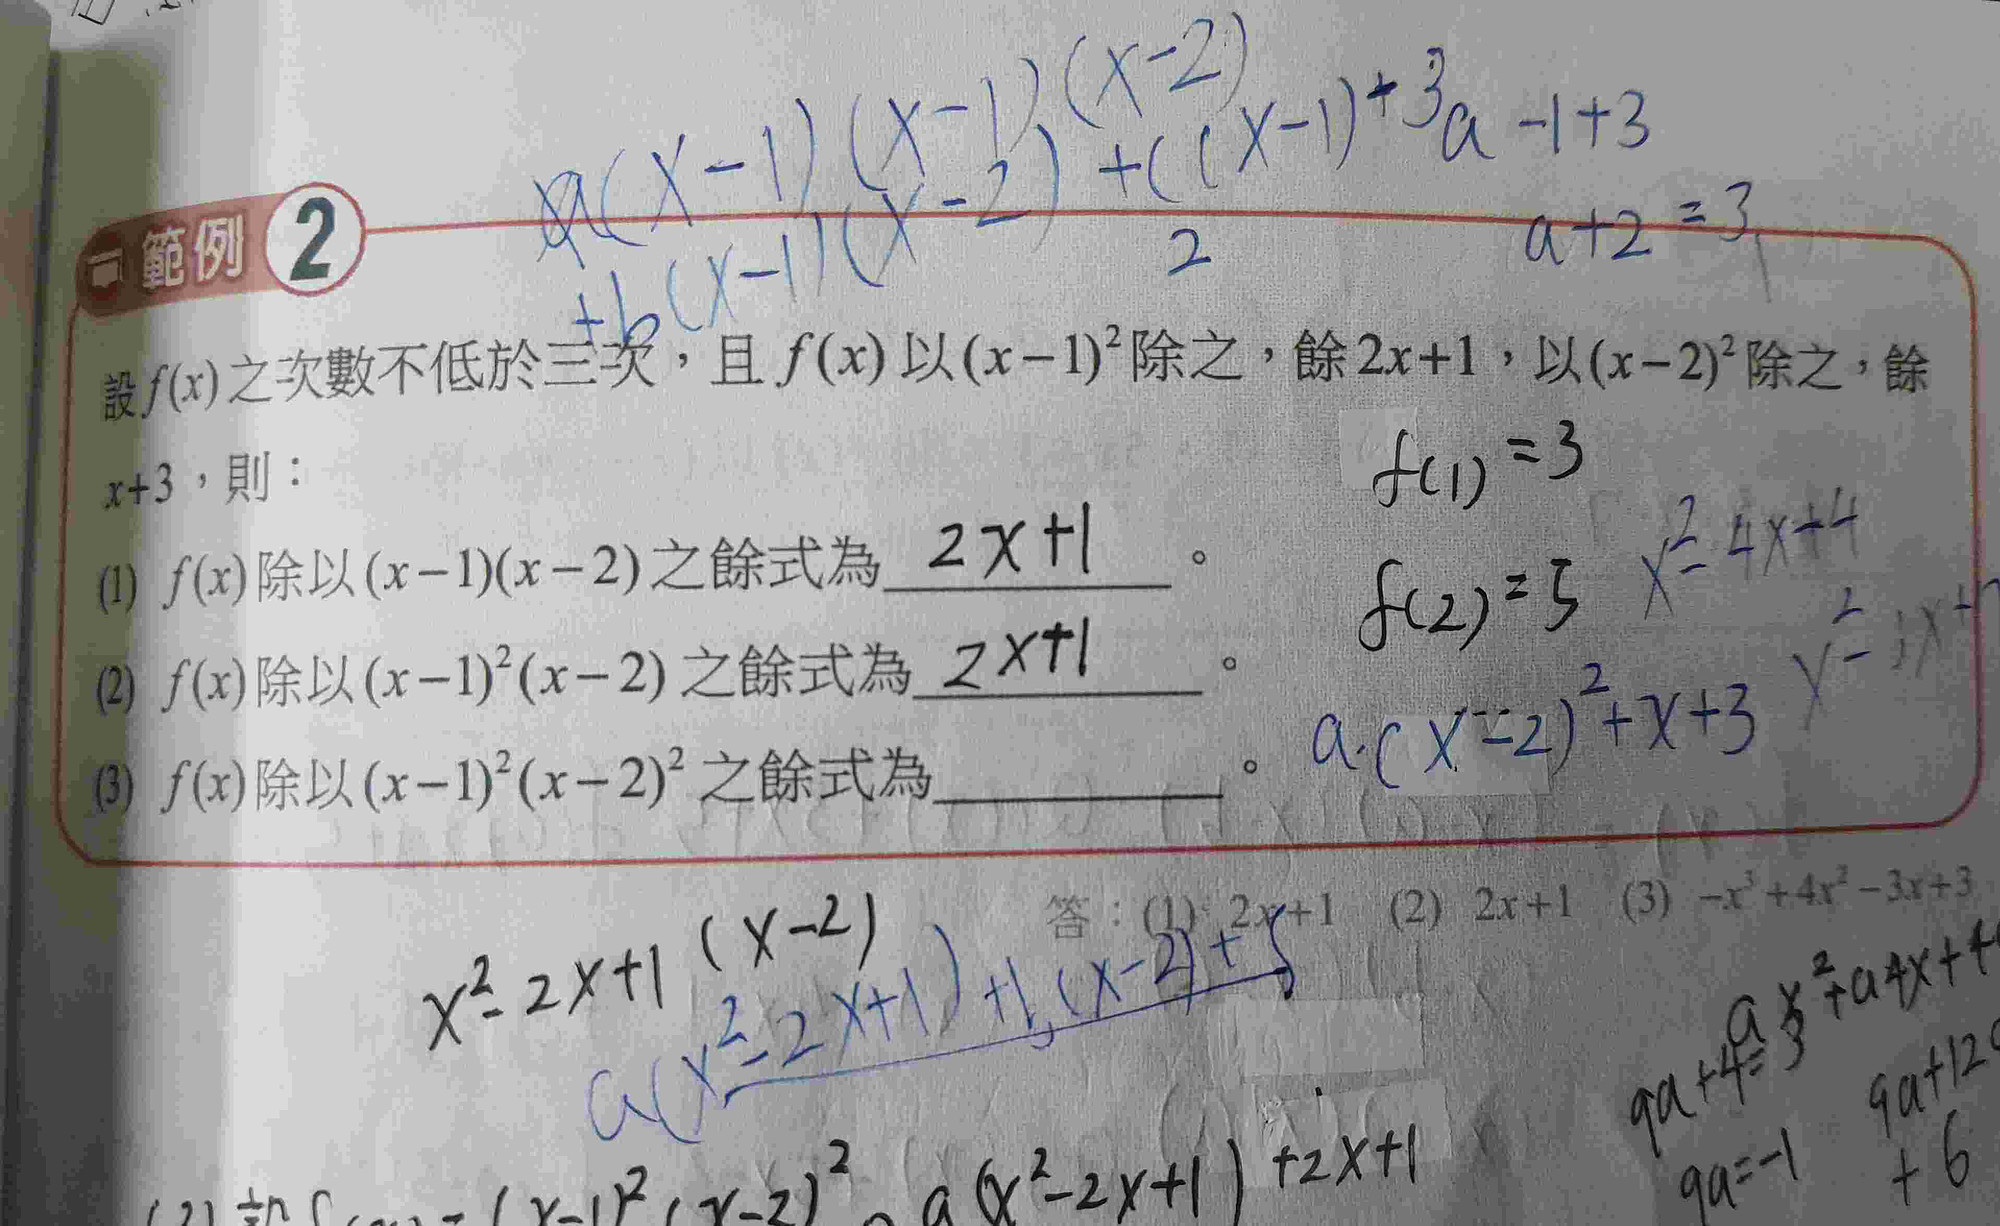 a(x-1)(x-1)(x-2)
+b(x-1)(x-2)+c(x-1)+3
2
a-1+3
a+2=3
範例 2
設f(x)之次數不低於三次,且f(x)以(x-1)²除之,餘2x+1,以(x-2)²除之,餘
x+3,則:
f(1)=3
(1) f(x)除以(x-1)(x-2)之餘式為 2x+1 。
f(2)=5
x²-4x+4
(2) f(x)除以(x-1)²(x-2)之餘式為 2x+1 。
a·(x-2)²+x+3
(3) f(x)除以(x-1)²(x-2)²之餘式為______。
答:(1) 2x+1 (2) 2x+1 (3) -x³+4x²-3x+3
x²-2x+1(x-2)
a(x²-2x+1)+b(x-2)+5
9a+4=3
9a=-1
9a+12
+6
a(x²-2x+1)+2x+1